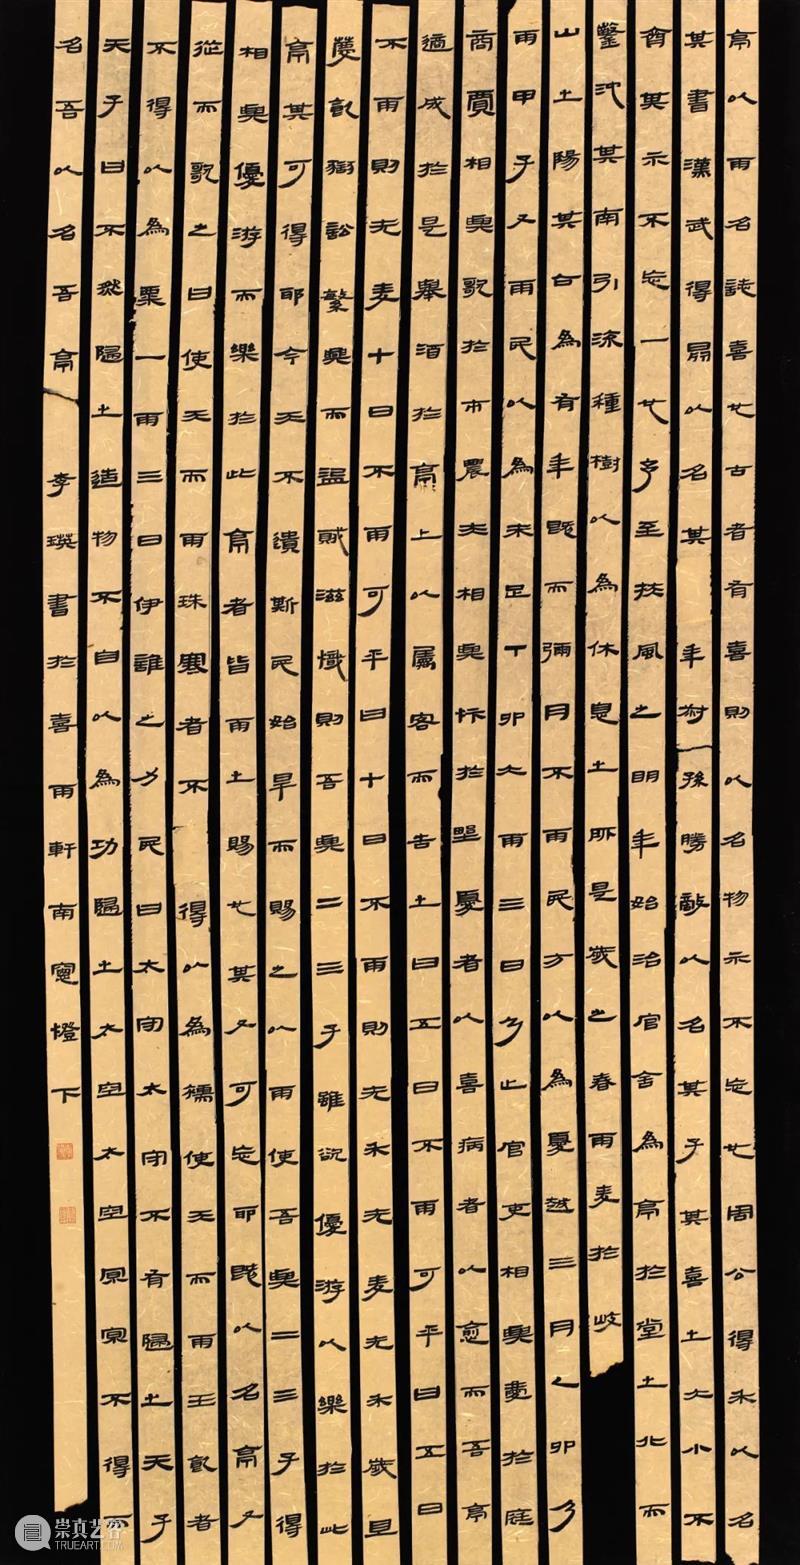 亭以雨名誌喜也古者有喜則以名物示不忘也周公得禾以名
其書漢武得鼎以名其年叔孫勝敵以名其子其喜之大小不
齊其示不忘一也予至扶風之明年始治官舍為亭於堂之北而
鑿池其南引流種樹以為休息之所是歲之春雨麥於岐
山之陽其占為有年既而彌月不雨民方以為憂越三月乙卯乃
雨甲子又雨民以為未足丁卯大雨三日乃止官吏相與慶於庭
商賈相與歌於市農夫相與忭於野憂者以喜病者以愈而吾亭
適成於是舉酒於亭上以屬客而告之曰五日不雨可乎曰五日
不雨則无麥十日不雨可乎曰十日不雨則无禾无麥无禾歲且
薦飢獄訟繁興而盜賊滋熾則吾與二三子雖欲優游以樂於此
亭其可得耶今天不遺斯民始旱而賜之以雨使吾與二三子得
相與優游而樂於此亭者皆雨之賜也其又可忘耶既以名亭又
從而歌之曰使天而雨珠寒者不得以為襦使天而雨玉飢者
不得以為粟一雨三日伊誰之力民曰太守太守不有歸之天子
天子曰不然歸之造物不自以為功歸之太空太空冥冥不得而
名吾以名吾亭 李書於喜雨軒南窗燈下
崇真艺客
TRUEART.COM